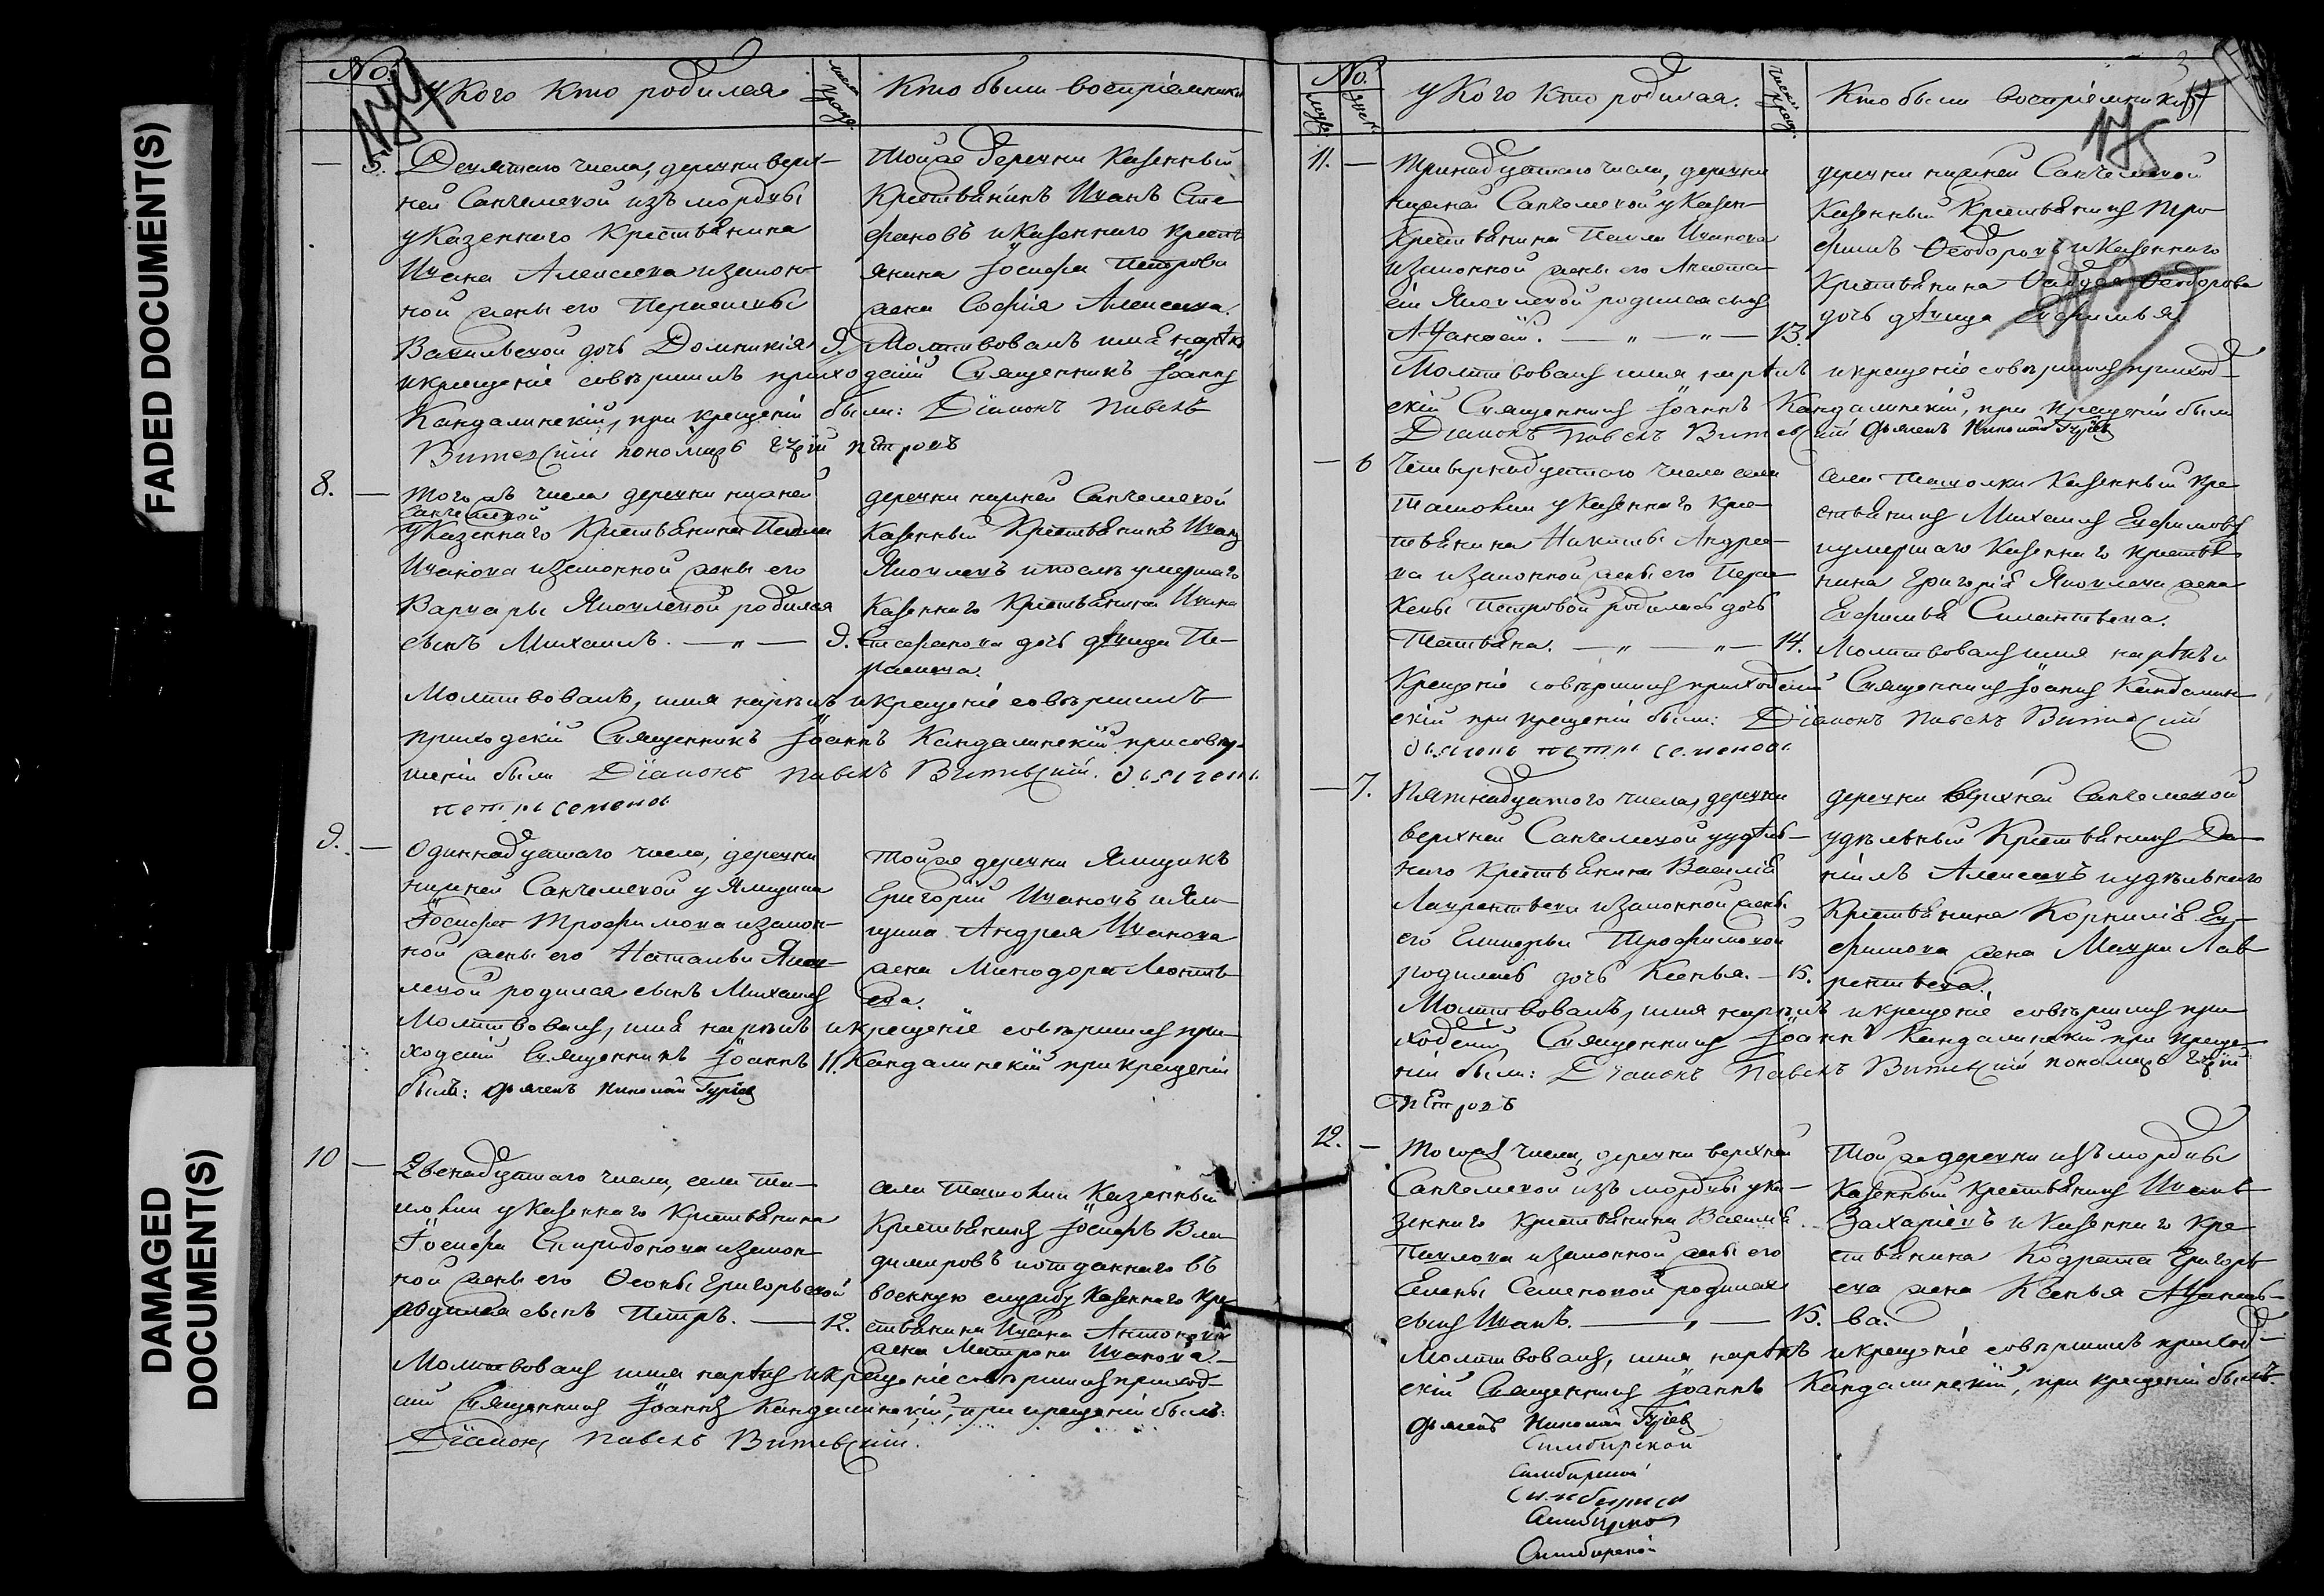 FADED DOCUMENT(S)
DAMAGED
DOCUMENT(S)
No.
У кого кто родился
Кто были воспріемники
5. Девятаго числа, деревни верх-
ней Санчелеевой изъ мордвы
у казеннаго крестьянина
Ивана Алексеева и закон-
ной жены его
Васильевой дочь Домникія 9.
Тойже деревни казенный
крестьянинъ Иванъ Сте-
фановъ и казеннаго крест-
янина Іосифа Петрова
жена Софія Алексеева.
Молитвовалъ имя нарекъ
и крещеніе совершилъ приходскій Священникъ Іоаннъ
Кандалинскій, при крещеніи были: Діаконъ Павелъ
Витевскій пономарь Петровъ
8. — Того жъ числа деревни нижней
Санчелеевой
у казеннаго крестьянина Павла
Иванова и законной жены его
Варвары Яковлевой родился
сынъ Михаилъ. — „ — 9.
деревни нижней Санчелеевой
казенный крестьянинъ Иванъ
Яковлевъ умершаго
казеннаго крестьянина Ивана
Стефанова дочь девица Пе-
Молитвовалъ, имя нарекъ и крещеніе совершилъ
приходскій Священникъ Іоаннъ Кандалинскій при совер-
шеніи были Діаконъ Павелъ Витевскій. дьячекъ
петръ семеновъ
9. — Одиннадцатаго числа, деревни
нижней Санчелеевой у ямщика
Іосифа Трофимова и закон-
ной жены его Натальи Яков-
левой родился сынъ Михаилъ 11.
Тойже деревни ямщикъ
Григорій Ивановъ и ям-
щика Андрея Иванова
жена Минодора Леонть-
ева.
Молитвовалъ, имя нарекъ и крещеніе совершилъ при-
ходскій Священникъ Іоаннъ Кандалинскій при крещеніи
былъ: дьячекъ Николай Гурьевъ
10 — Двенадцатаго числа, села Та-
шолки у казеннаго крестьянина
Іосифа Спиридонова и закон-
ной жены его Ѳеоны Григорьевой
родился сынъ Петръ. — 12.
села Ташолки казенный
крестьянинъ Іосифъ Вла-
димировъ и отданнаго въ
военную службу казеннаго кре-
стьянина Ивана Антонова
жена Матрона Иванова.—
Молитвовалъ имя нарекъ и крещеніе совершилъ приход-
скій Священникъ Іоаннъ Кандалинскій, при крещеніи былъ:
Діаконъ Павелъ Витевскій.
No.
У кого кто родился.
Кто были воспріемники
175
11. — Тринадцатаго числа, деревни
нижней Санчелеевой у казен-
крестьянина Павла Иванова
и законной жены его Анаста-
сіи Яковлевой родился сынъ
Аѳанасій. — „ — „ — 13.
деревни нижней Санчелеевой
казенный крестьянинъ Тро-
фимъ Ѳеодоровъ и казеннаго
крестьянина Ѳеодорова
дочь девица Евфимья
Молитвовалъ имя нарекъ и крещеніе совершилъ приход-
скій Священникъ Іоаннъ Кандалинскій, при крещеніи были
Діаконъ Павелъ Витевскій дьячекъ Николай Гурьевъ
— 6 Четырнадцатаго числа села
Ташолки у казеннаго кре-
стьянина Никиты Андрее-
ва и законной жены его Парас-
кевы Петровой родилась дочь
Татьяна. — „ — „ — 14.
села Ташолки казенный кре-
стьянинъ Михаилъ Евфимовъ
и умершаго казеннаго крестья
нина Григорія Яковлева жена
Евфимья Силантьева.
Молитвовалъ имя нарекъ и
крещеніе совершилъ приходскій Священникъ Іоаннъ Кандалин-
скій при крещеніи были: Діаконъ Павелъ Витевскій
дьячекъ петръ семеновъ
— 7. Пятнадцатого числа, деревни
верхней Санчелеевой у удель-
наго крестьянина Василія
Лаврентьева и законной жены
его Гликерьи Трофимовой
родилась дочь Ксенья. — 15.
деревни верхней Санчелеевой
удельный крестьянинъ Да-
ніилъ Алексеевъ и удельнаго
крестьянина Корнилія Ев-
фимова жена Мавра Лав-
рентьева.
Молитвовалъ, имя нарекъ и крещеніе совершилъ при-
ходскій Священникъ Іоаннъ Кандалинскій при креще-
ніи были: Діаконъ Павелъ Витевскій пономарь
Петровъ
12. — Того жъ числа, деревни верхней
Санчелеевой изъ мордвы у ка-
зеннаго крестьянина Василія
Павлова и законной жены его
Елены Семеновой родился
сынъ Иванъ. — „ — 15.
Тойже деревни изъ мордвы
казенный крестьянинъ Иванъ
Захаріевъ и казеннаго кре-
стьянина Кодрата Григорь
ева жена Ксенья Аѳанась-
ва.
Молитвовалъ, имя нарекъ и крещеніе совершилъ приход-
скій Священникъ Іоаннъ Кандалинскій, при крещеніи былъ.
дьячекъ Николай Гурьевъ
Симбирской
Симбирской
Симбирской
Симбирской